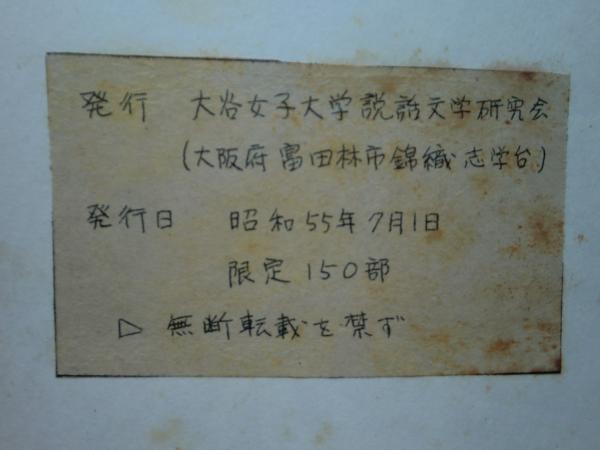 発行 大谷女子大学説話文学研究会
(大阪府富田林市錦織志学台)
発行日 昭和55年7月1日
限定150部
▷ 無断転載を禁ず